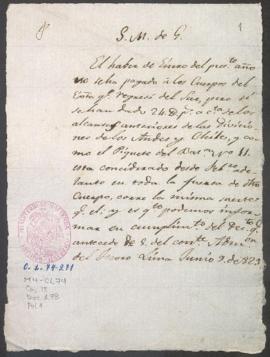 1
S. M. de G.
El haber de Enero del pres.te año
no se ha pagado à los Cuerpos del
Exto q.e regresó del Sur, pero sí
se han dado 24. D p.s à c.ta de los
alcances anteriores de las Divisio-
nes de los Andes y Chile, y co-
mo el Piquete del Bat.n n.o 11.
esta considerado desde Feb.o ade-
lante en toda la fuerza de
Cuerpo, corre la misma suerte
q.e el: y es q.to podemos infor-
mar en cumplim.to del Dec.to q.e
antecede de S. del corr.te Adm.on
del Tesoro Lima Junio 9. de 823
O.L. 74-271
MH-OL 74
Caj. 15
Doc. 278
Fol. 1